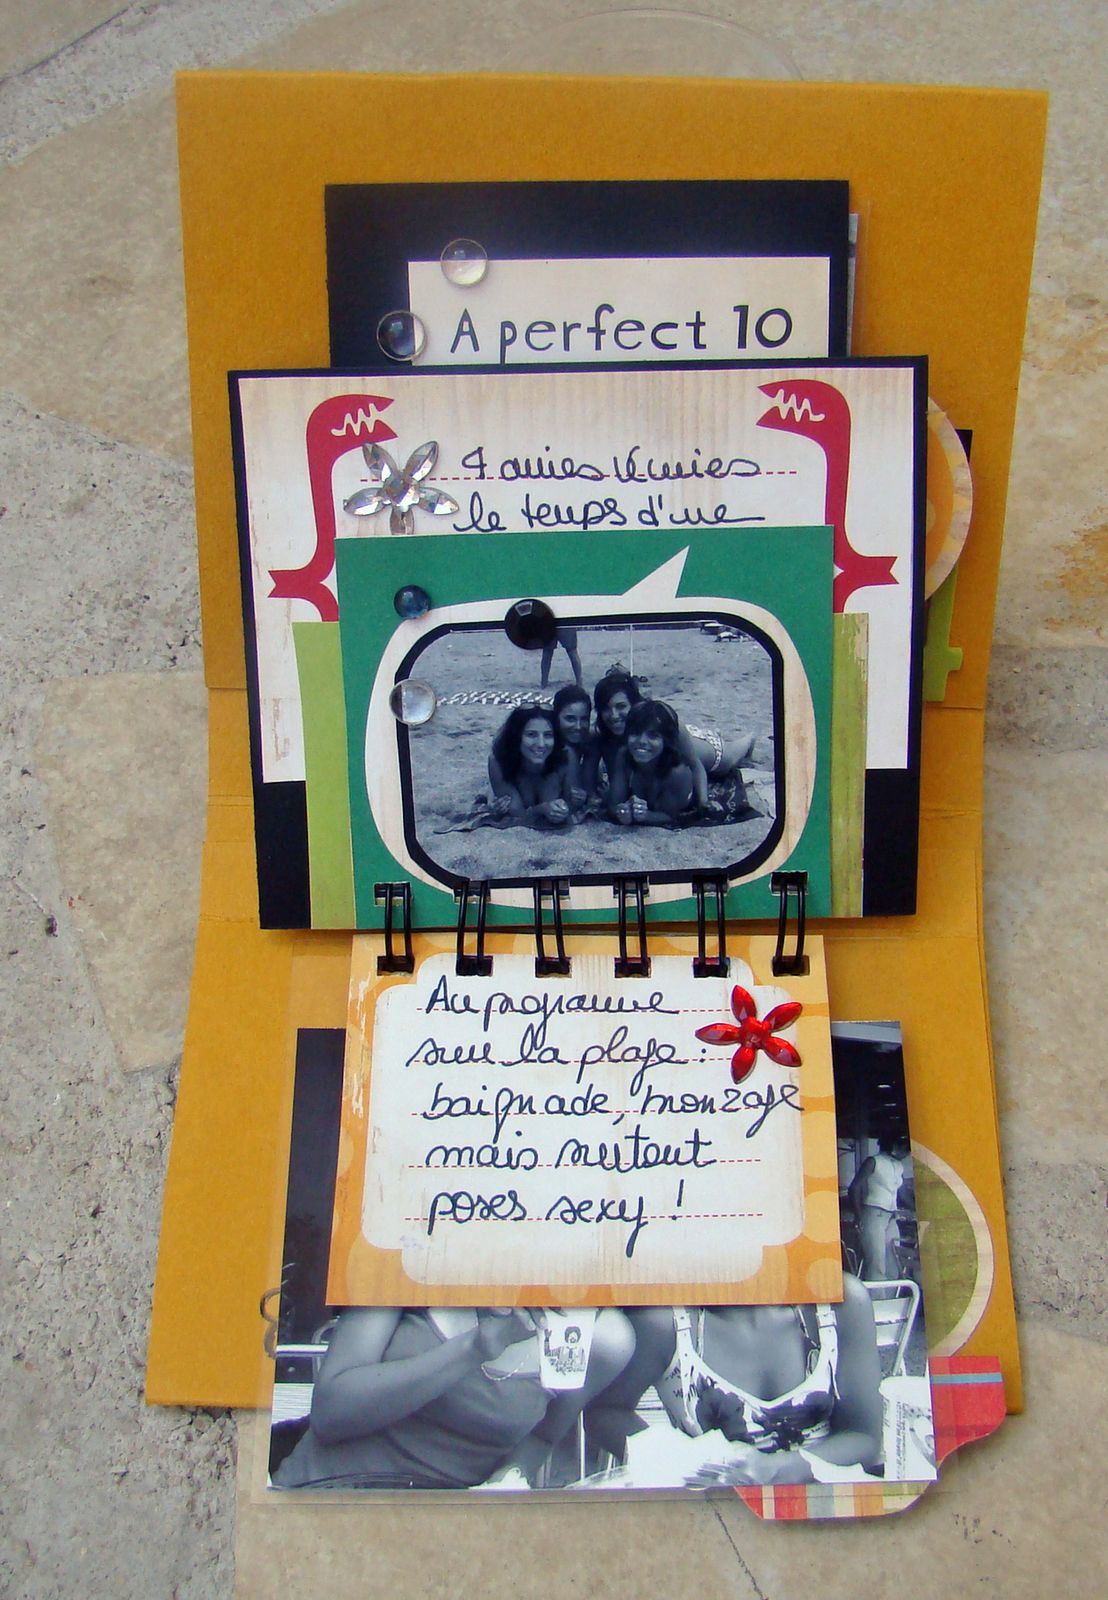 A perfect 10
4 amies réunies
le temps d'une
Au programme
sur la plage :
baignade, bronzage
mais surtout
poses sexy !